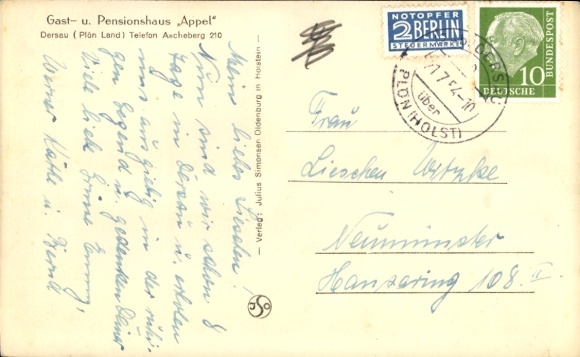 Gast- u. Pensionshaus „Appel"
Dersau (Plön Land) Telefon Ascheberg 210
Meine lieben
Nun sind wir schon 8
Tage in Dersau u. erholen
uns ausgiebig in der ruhi-
gen Gegend u. gedenken Deiner
Viele liebe Grüsse
Werner Käthe u. Bernd
— Verlag: Julius Simonsen Oldenburg in Holstein —
NOTOPFER
2 BERLIN
STEUERMARKE
DEUTSCHE
BUNDESPOST
10
7.54.-10
über
PLÖN (HOLST)
Frau
Lieschen Witzke
Neumünster
Hansaring 108 II